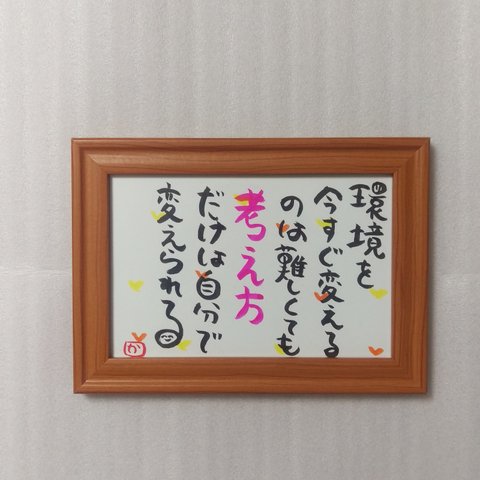 環境を
今すぐ変える
のは難しくても
考え方
だけは自分で
変えられる
か